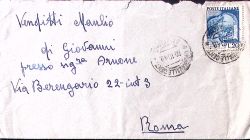 Venditti Manlio
di Giovanni
presso sigra Arnone
Via Berengario 22-int 3
Roma
POSTE ITALIANE
L.20